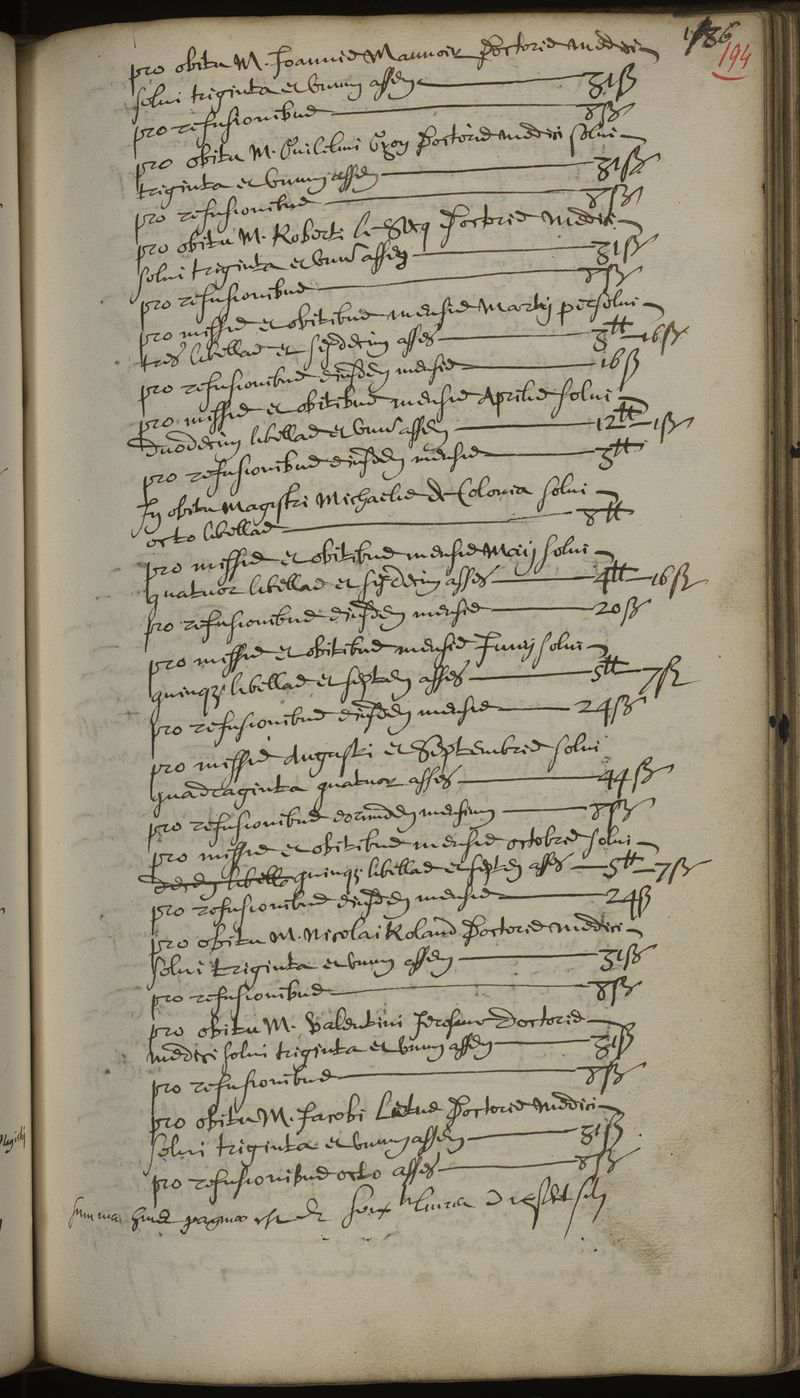 186
194
pro obitu M. Joannis Mannoir Doctoris medici
solui triginta et vnum assem 31ß
pro refusionibus 8ß
pro obitu M. Guilelmi doctoris medici solui
triginta et vnum assem 31ß
pro refusionibus 8ß
pro obitu M. Roberti le Secq doctoris medici
solui triginta et vnū assem 31ß
pro refusionibus 8ß
pro missis et obitibus mensis Martij persolui
tres libellas et sexdecim asses 3tt 16ß
pro refusionibus eiusdem mensis 16ß
pro missis et obitibus mensis Aprilis solui
duodecim libellas et vnū assem 12tt 1ß
pro refusionibus eiusdem mensis 3tt
In obitu Magistri Michaelis de Colonia solui
octo libellas 8tt
pro missis et obitibus mensis Maij solui
quatuor libellas et sexdecim asses 4tt 16ß
pro refusionibus eiusdem mensis 20ß
pro missis et obitibus mensis Junij solui
quinq; libellas et septem asses 5tt 7ß
pro refusionibus eiusdem mensis 24ß
pro missis Augusti et Septembris solui
quadraginta quatuor asses 44ß
pro refusionibus eorumdem mensium 8ß
pro missis et obitibus mensis octobris solui
decem libellas quinq; libellas et septem asses 5tt 7ß
pro refusionibus eiusdem mensis 24ß
pro obitu M. Nicolai Roland doctoris medici
solui triginta et vnum assem 31ß
pro refusionibus 8ß
pro obitu M. Valentini doctoris
medici solui triginta et vnum assem 31ß
pro refusionibus 8ß
pro obitu M. Jacobi Letus doctoris medici
solui triginta et vnum assem 31ß
pro refusionibus octo asses 8ß
summa huius paginae est